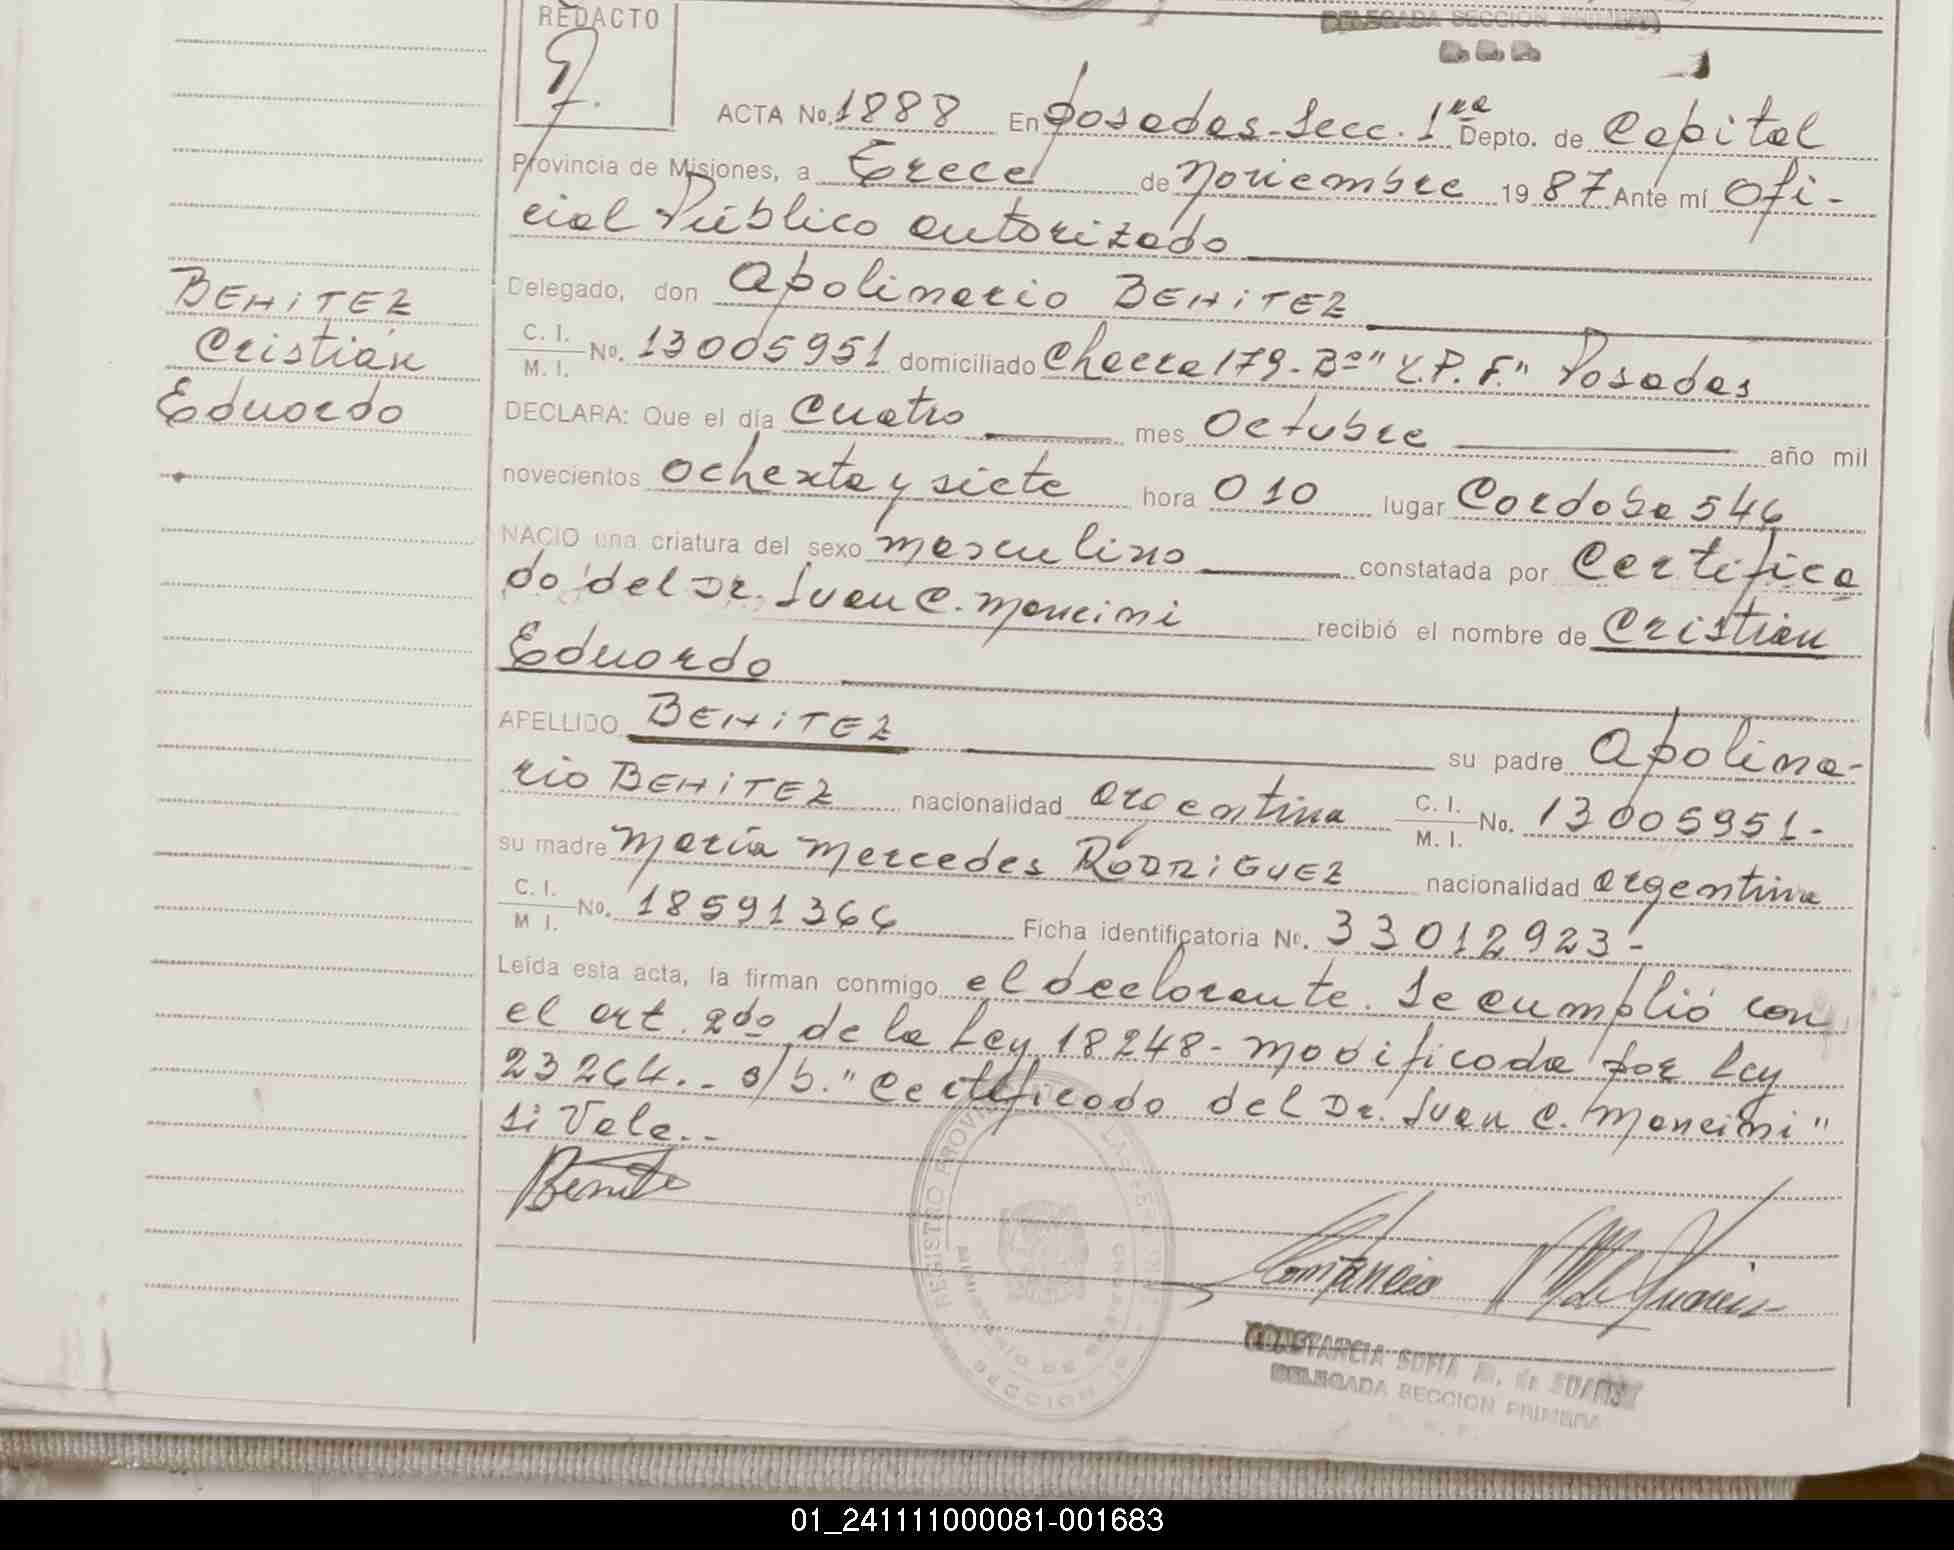 REDACTO
DELEGADA SECCION PRIMERA
ACTA No. 1888 En Posadas-Secc. 1ra Depto. de Capital
Provincia de Misiones, a Trece de Noviembre 1987 Ante mí Ofi-
cial Público autorizado
Delegado, don Apolinario BENITEZ
C. I. M. I. No. 13005951 domiciliado Chacra 179-Bº "Y.P.F." Posadas
DECLARA: Que el día Cuatro mes Octubre año mil
novecientos ochenta y siete hora 010 lugar Cordoba 546
NACIO una criatura del sexo masculino constatada por Certifica
do del Dr. Juan C. Mancini recibió el nombre de Cristian
Eduardo
APELLIDO BENITEZ su padre Apolina-
rio BENITEZ nacionalidad argentina C. I. M. I. No. 13005951-
su madre María Mercedes RODRIGUEZ nacionalidad argentina
C. I. M I. No. 18591366 Ficha identificatoria Nº. 33012923-
Leída esta acta, la firman conmigo el declarante. Se cumplió con
el art. 2do de la Ley 18248- modificada por Ley
23264.- s/b. "Certificado del Dr. Juan C. Mancini"
si Vale.-
BENITEZ
Cristián
Eduardo
REGISTRO PROVINCIAL DE LAS PERSONAS
CONSTANCIA SOFIA M. de SUAREZ
DELEGADA SECCION PRIMERA
01_241111000081-001683